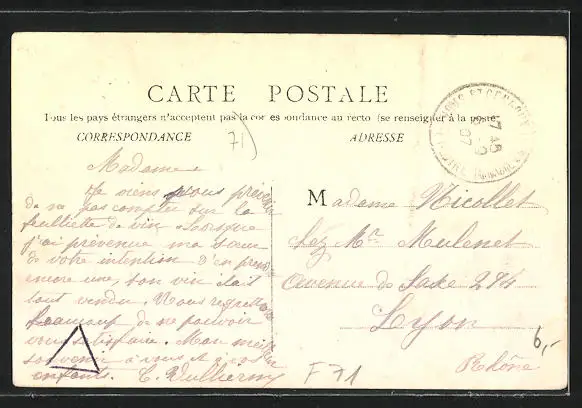 CARTE POSTALE
Tous les pays étrangers n'acceptent pas la correspondance au recto (se renseigner à la poste)
CORRESPONDANCE
ADRESSE
71)
Madame
Je viens vous
de ne pas compter sur la
feuillette de vin Lorsque
j'ai prévenue ma sœur
de votre intention d'en
encore une, son vin était
tout vendu. Nous
beaucoup de ne pouvoir
vous satisfaire. Mon
souvenir à vous et à vos
enfants.
Madame Nicollet
chez Mr Mulenet
Avenue de Saxe 274
Lyon
Rhône
F 71
6,-